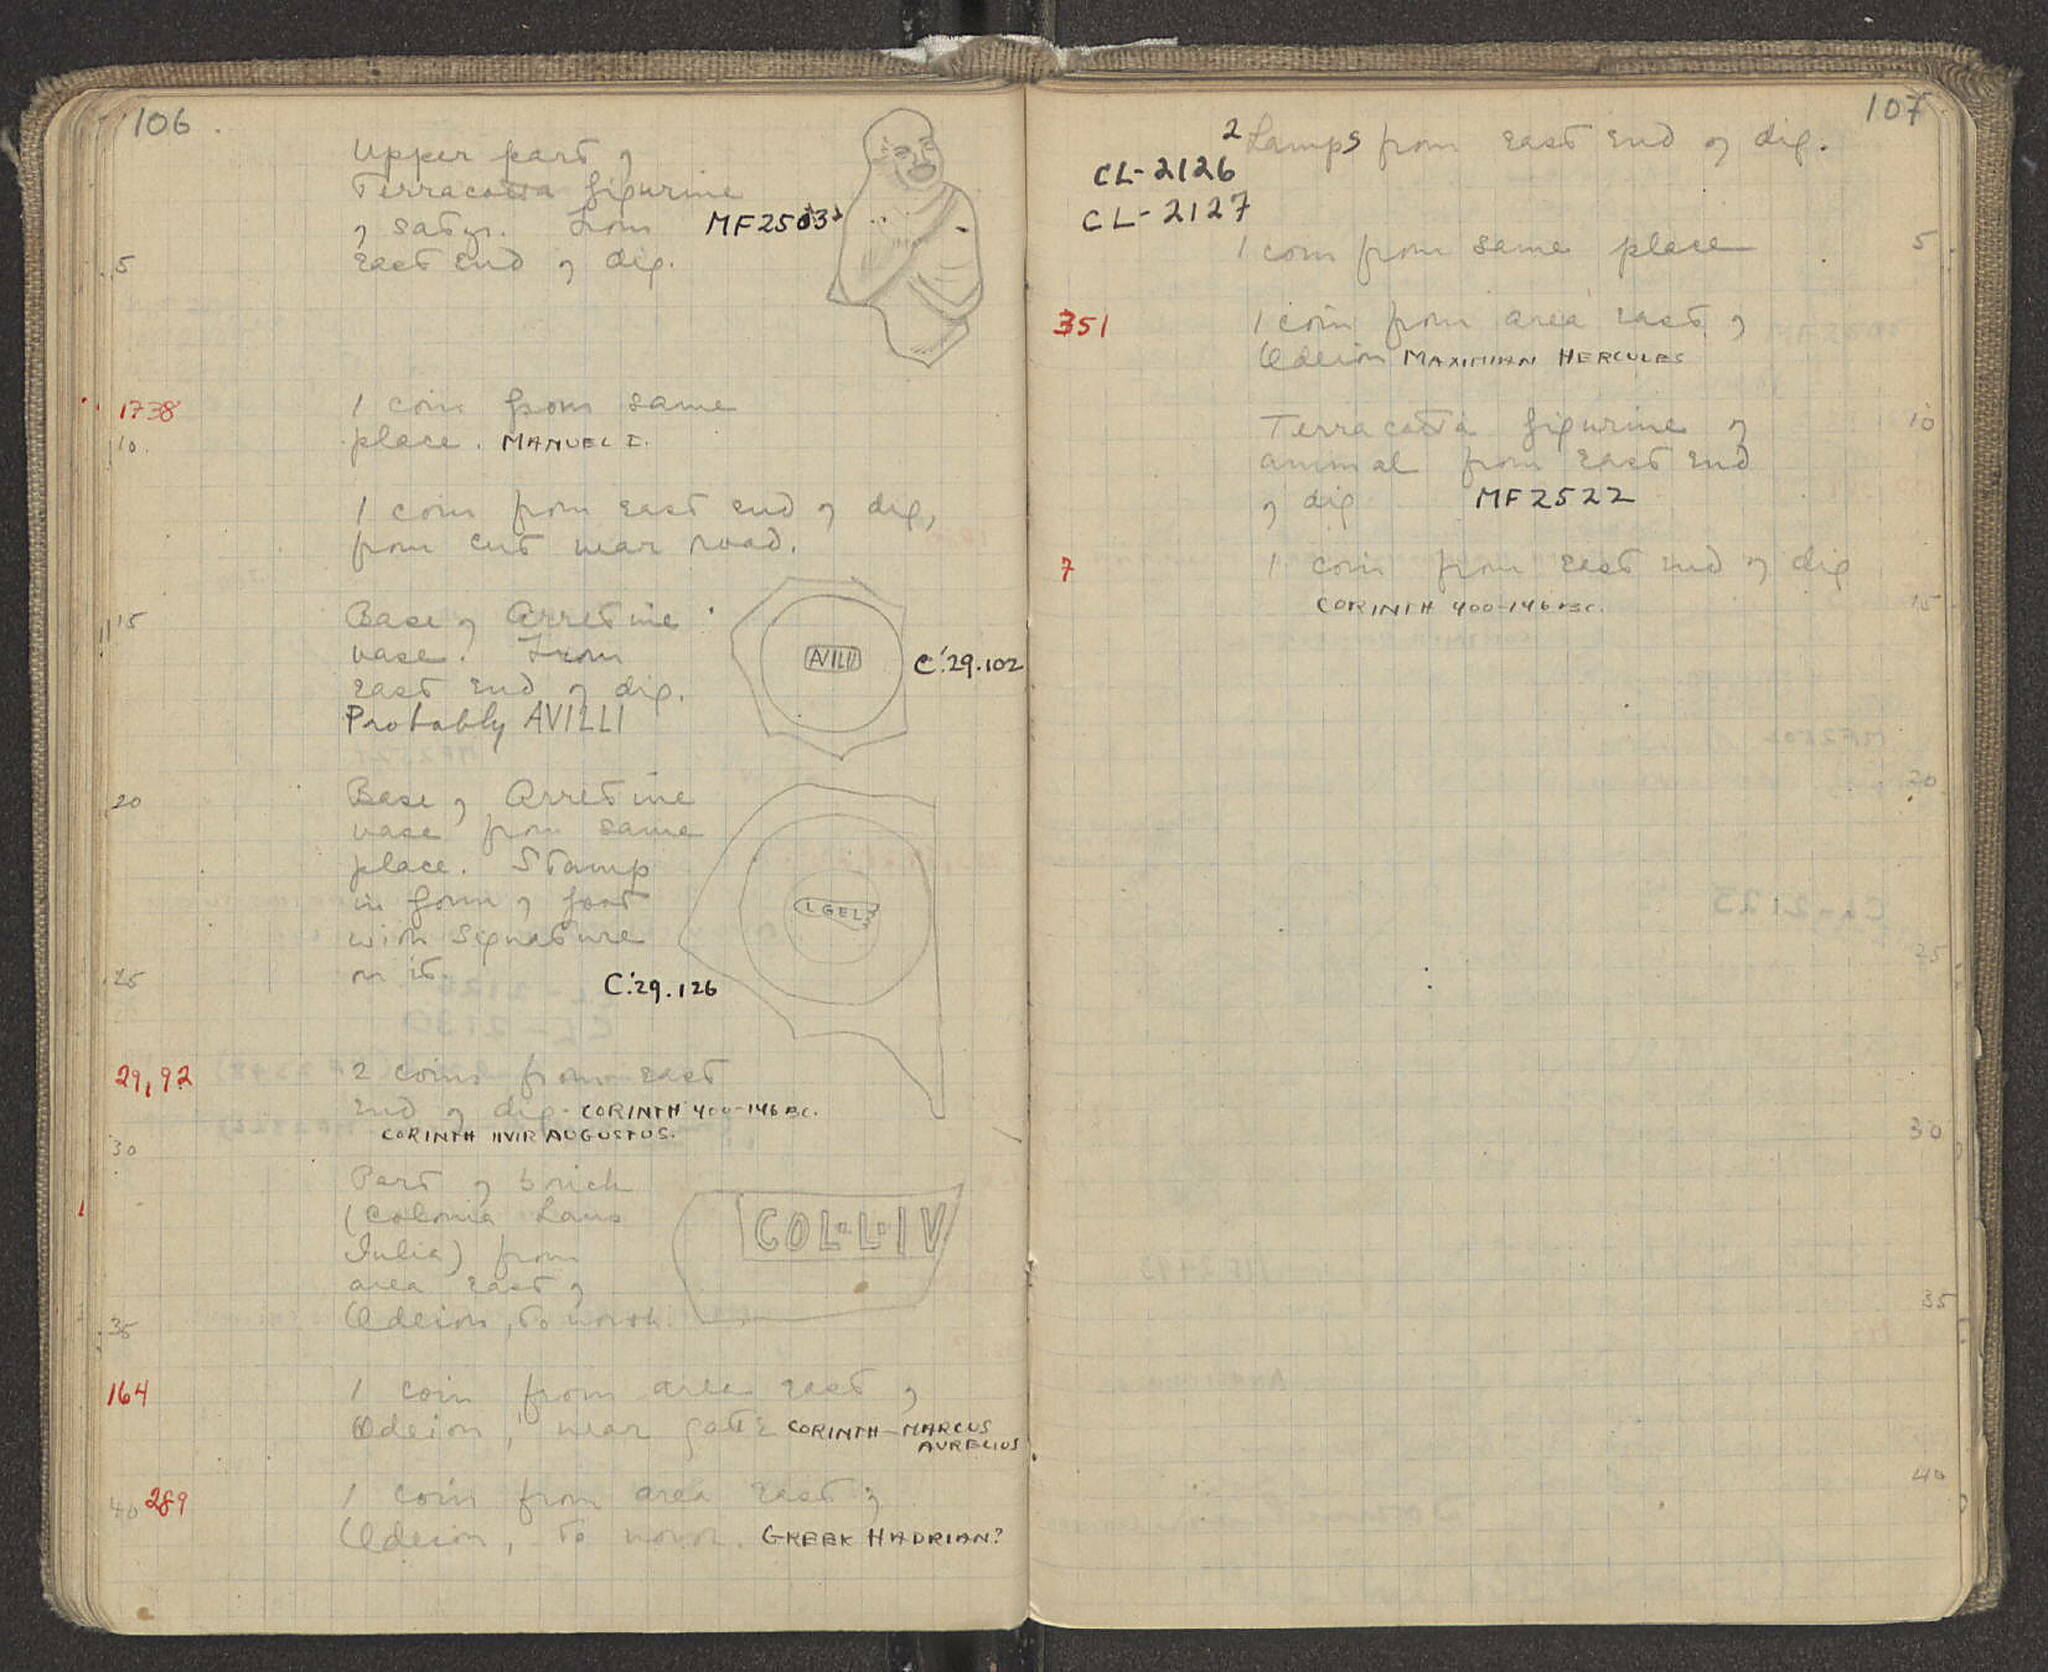 106
Upper part of
Terracotta figurine
of satyr. From MF2503
5 East End of dig.
1738 1 coin from same
10 place. MANUEL I.
1 coin from east end of dig,
from cut near road.
15 Base of Arretine
vase. From AVILLI C:29.102
east end of dig.
Probably AVILLI
20 Base of Arretine
vase from same
place. Stamp
in form of foot L GEL
with signature
25 on it. C:29.126
29,92 2 coins from east
end of dig. CORINTH 400-146 BC.
CORINTH IIVIR AUGUSTUS.
30
Part of brick
(Colonia Laus COL·L·IV
Iulia) from
area east of
35 Odeion, to north.
164 1 coin from area east of
Odeion, near gate CORINTH - MARCUS
AURELIUS
40 289 1 coin from area east of
Odeion, to north. GREEK HADRIAN?
107
2 Lamps from east end of dig.
CL-2126
CL-2127
1 coin from same place 5
351 1 coin from area east of
Odeion MAXIMIAN HERCULES
Terracotta figurine of 10
animal from east end
of dig MF2522
7 1 coin from east end of dig
CORINTH 400-146 BC. 15
20
25
30
35
40